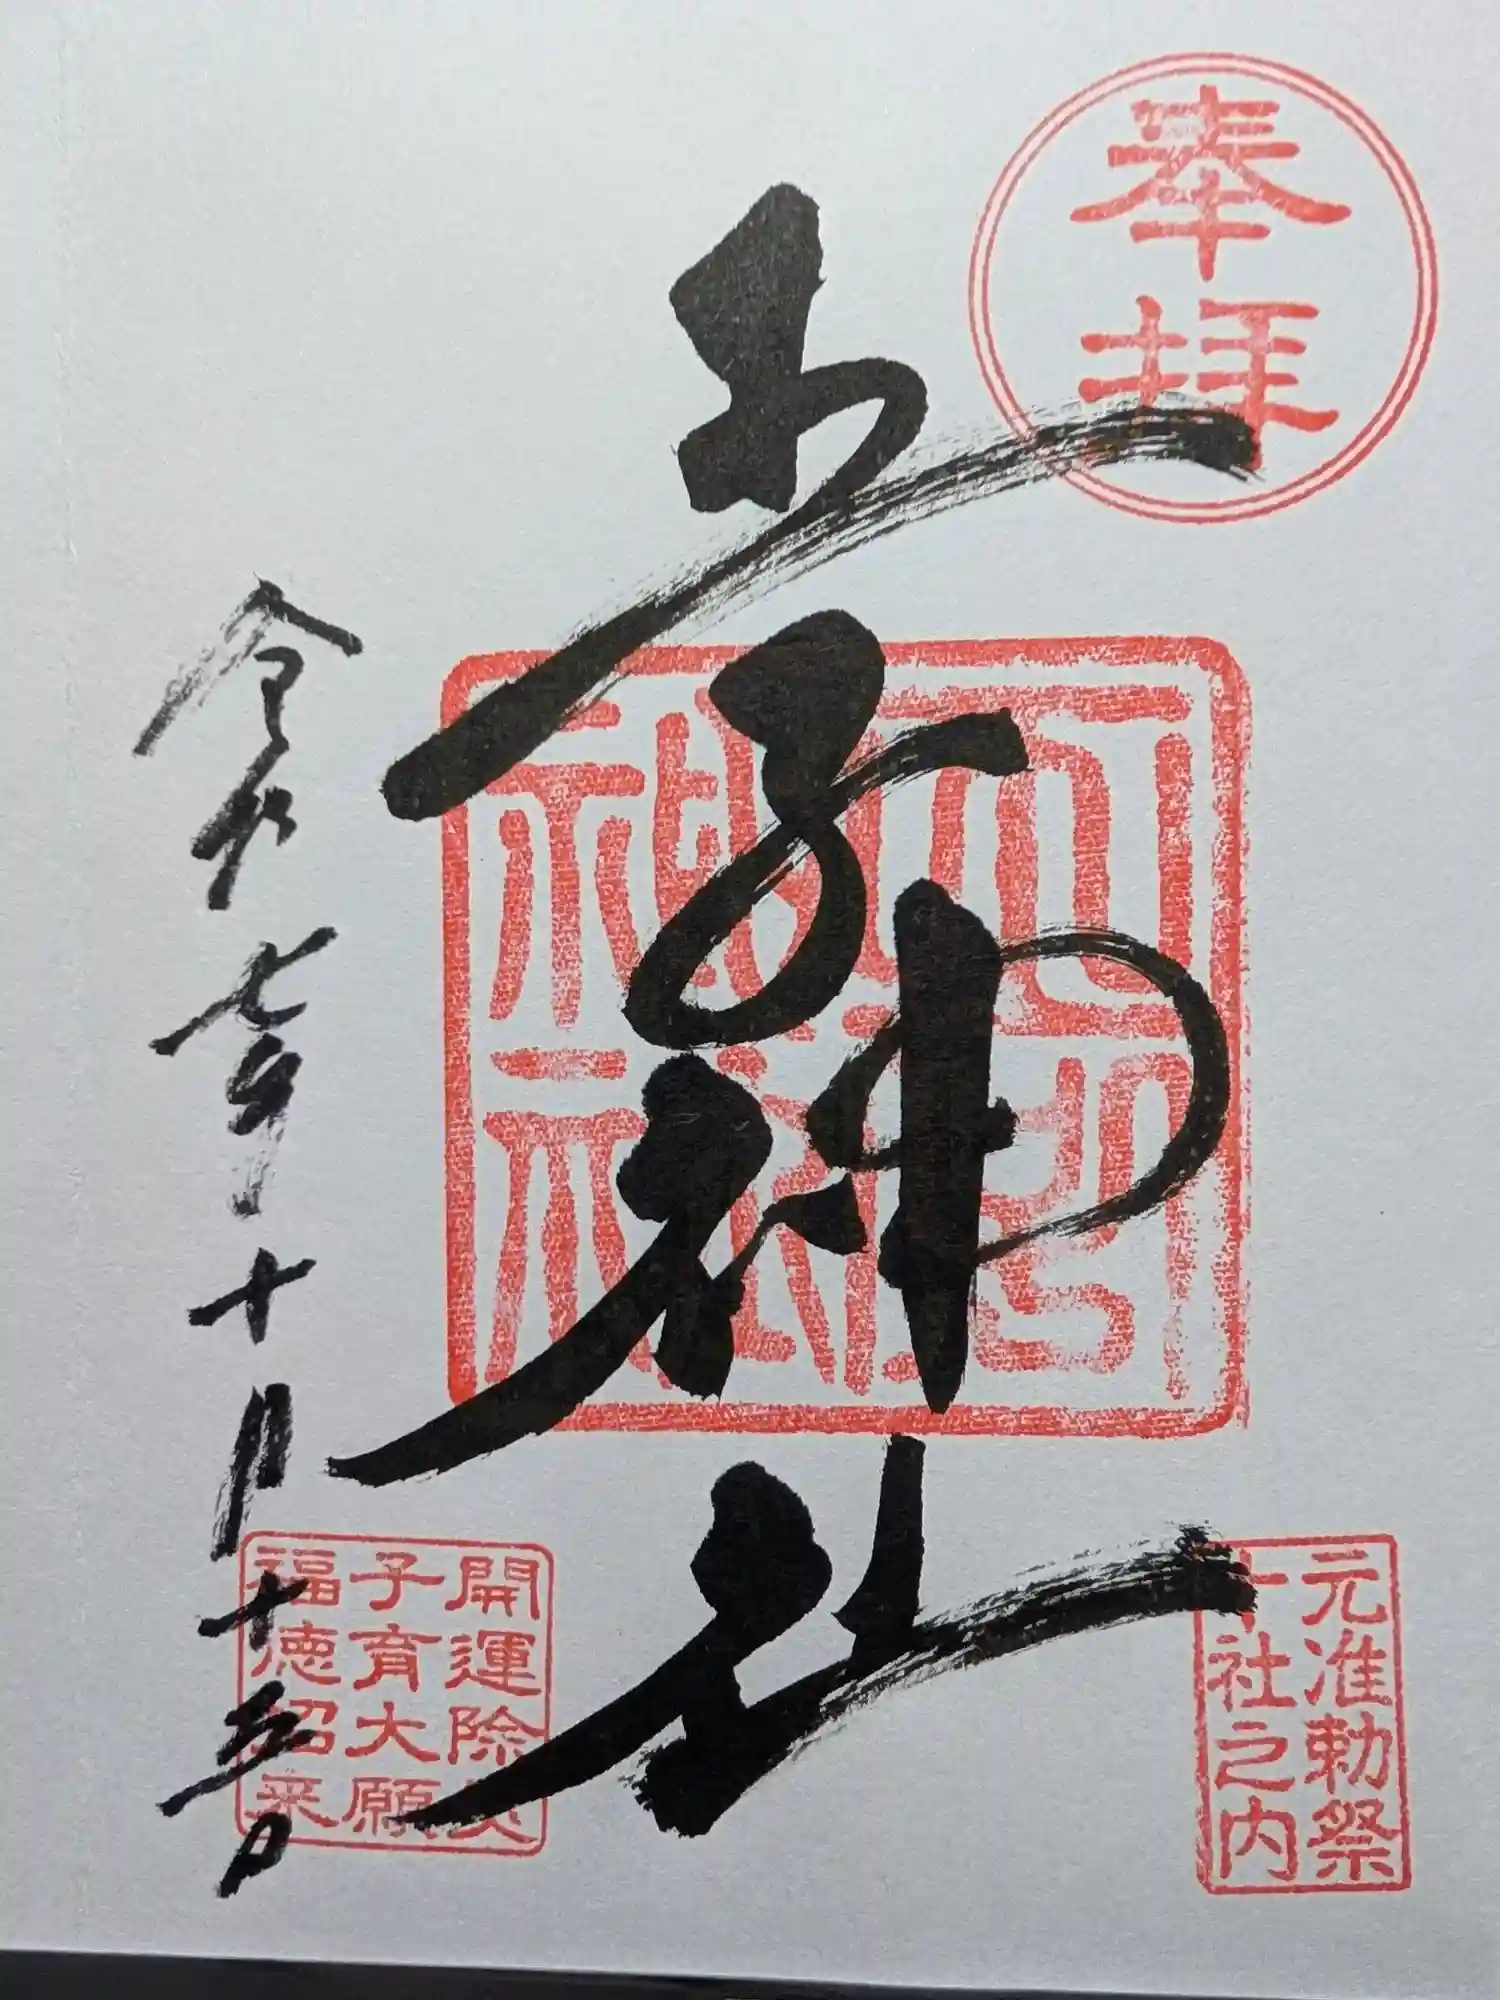 奉拝
王子神社
令和七年十月十五日
元准勅祭
十社之内
開運除災
子育大願
福徳招来